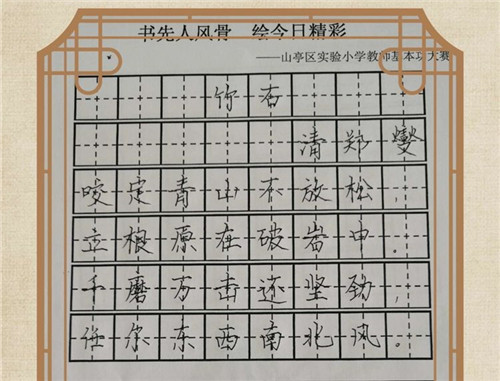 书先人风骨 绘今日精彩
——山亭区实验小学教师基本功大赛
竹石
清郑燮
咬定青山不放松，
立根原在破岩中。
千磨万击还坚劲，
任尔东西南北风。